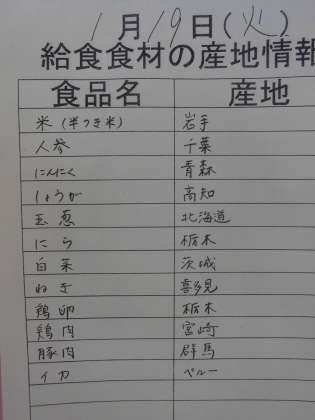 1月19日(火)
給食食材の産地情報
食品名 産地
米(半つき米) 岩手
人参 千葉
にんにく 青森
しょうが 高知
玉葱 北海道
にら 栃木
白菜 茨城
ねぎ 喜多見
鶏卵 栃木
鶏肉 宮崎
豚肉 群馬
イカ ペルー